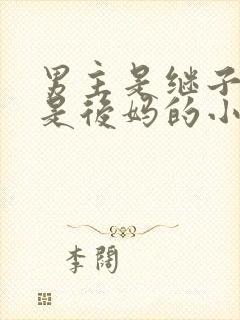 男主是继子
是後妈的小
李闊